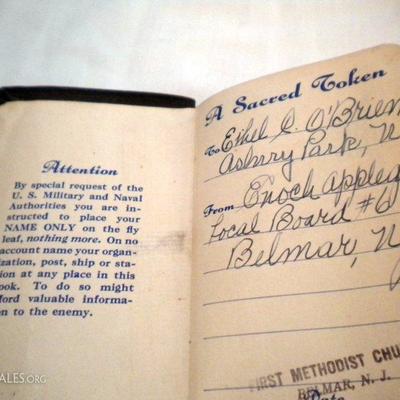 Attention
By special request of the
U. S. Military and Naval
Authorities you are in-
structed to place your
NAME ONLY on the fly
leaf, nothing more. On no
account name your organ-
ization, post, ship or sta-
tion at any place in this
book. To do so might
ford valuable informa-
on to the enemy.
A Sacred Token
To Ethel C. O'Brien
Asbury Park, N
From Enoch Appleg
Local Board #6
Belmar, N
FIRST METHODIST CHU
BELMAR, N. J.
Date
ALES.ORG